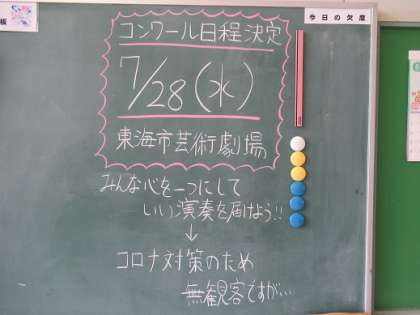 板
今日の欠席
コンクール日程決定
7/28(水)
東海市芸術劇場
みんな心を一つにして
いい演奏を届けよう!!
↓
コロナ対策のため
無観客ですが...